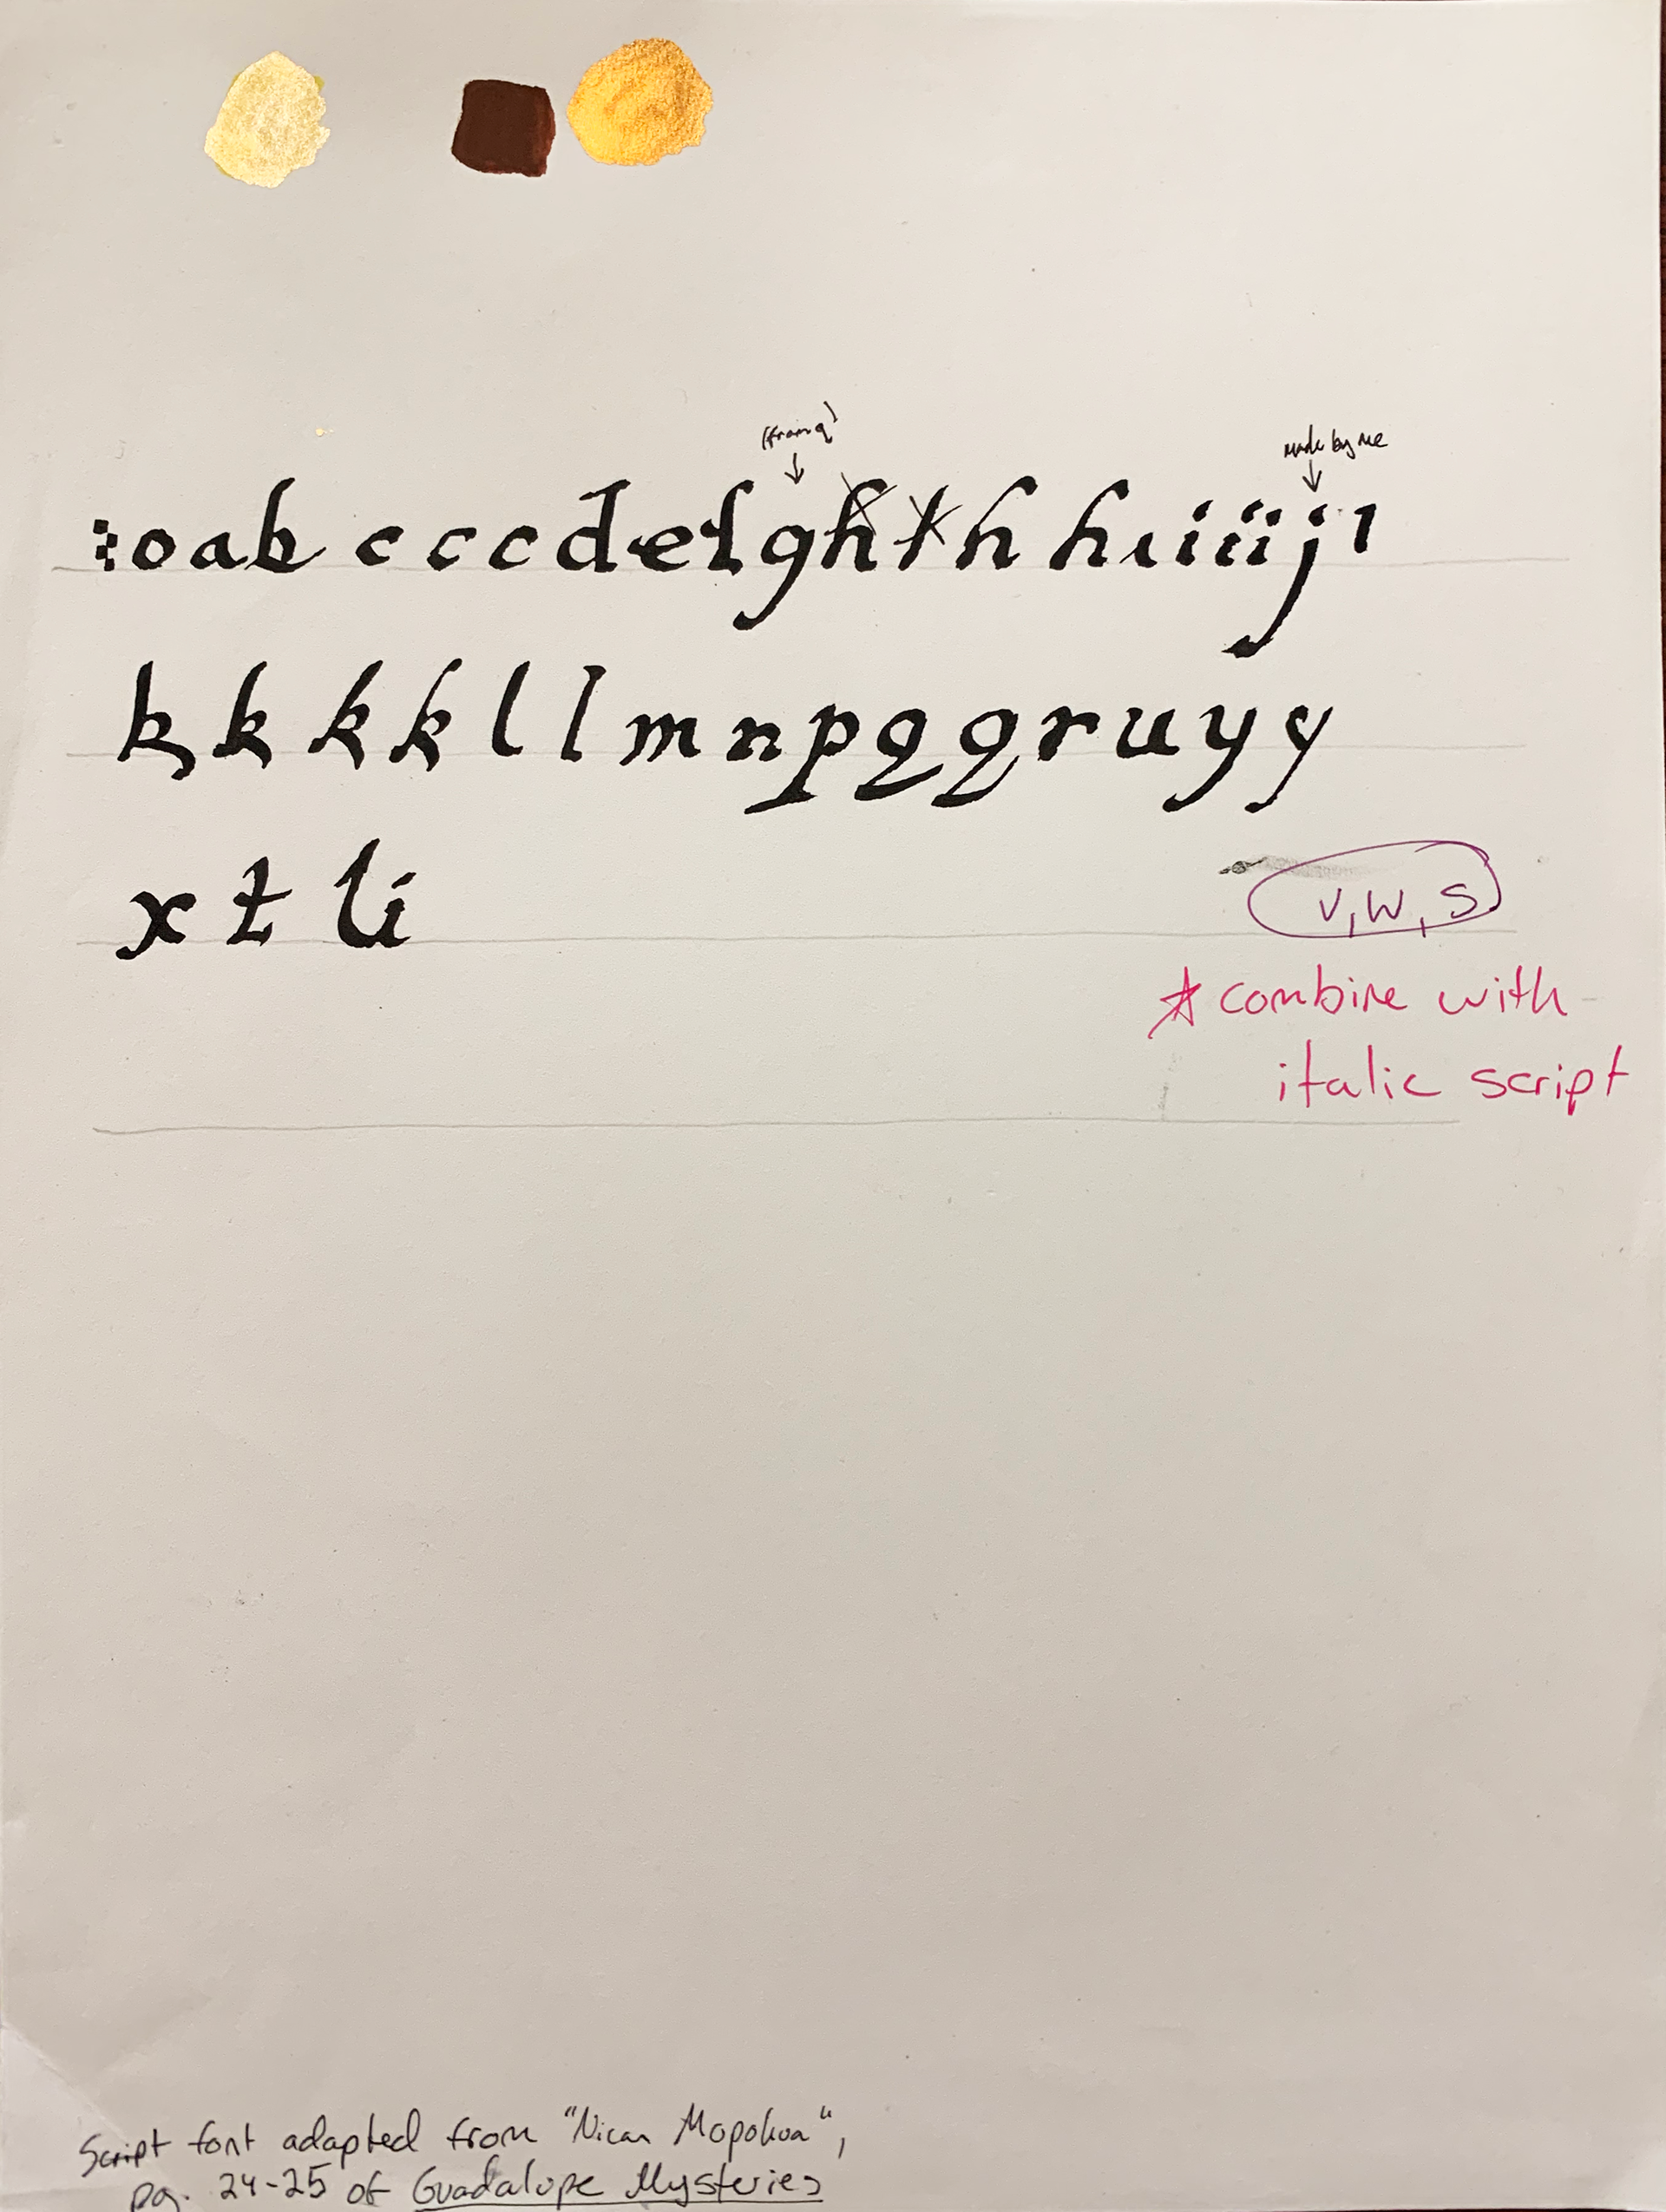 (from q)
made by me
:oab cccdefghthhıiïijı
kkkkllmnpqqruyy
xtli
v, w, s
* combine with
italic script
Script font adapted from "Nican Mopohua",
pg. 24-25 of Guadalupe Mysteries